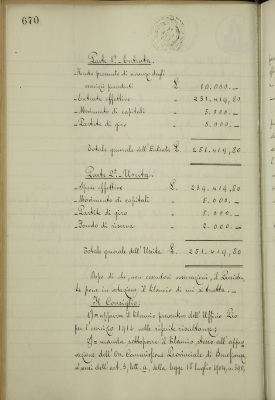 670
Parte 1ª Entrata.
Fondo presunto di avanzo degli
esercizi precedenti £ 10.000.—
Entrate effettive " 231.419,50
Movimento di capitali " 5.000.—
Partite di giro " 5.000.—
Totale generale dell'Entrata £. 251.419,50
Parte 2ª Uscita.
Spese effettive £. 239.419,50
Movimento di capitali " 5.000.—
Partite di giro " 5.000.—
Fondo di riserva " 2.000.—
Totale generale dell'Uscita £. 251.419,50
Dopo di che, non essendovi osservazioni, il Presiden-
te pone in votazione il bilancio di cui si tratta.
Il Consiglio,
approva il bilancio preventivo dell'Ufficio
per l'esercizio 1913 nelle risultanze;
manda sottoporre il bilancio stesso all'appro-
vazione dell'On. Commissione Provinciale di Beneficenza
ai sensi dell'art. 3, lett. della legge 18 luglio 1904, n. 390.